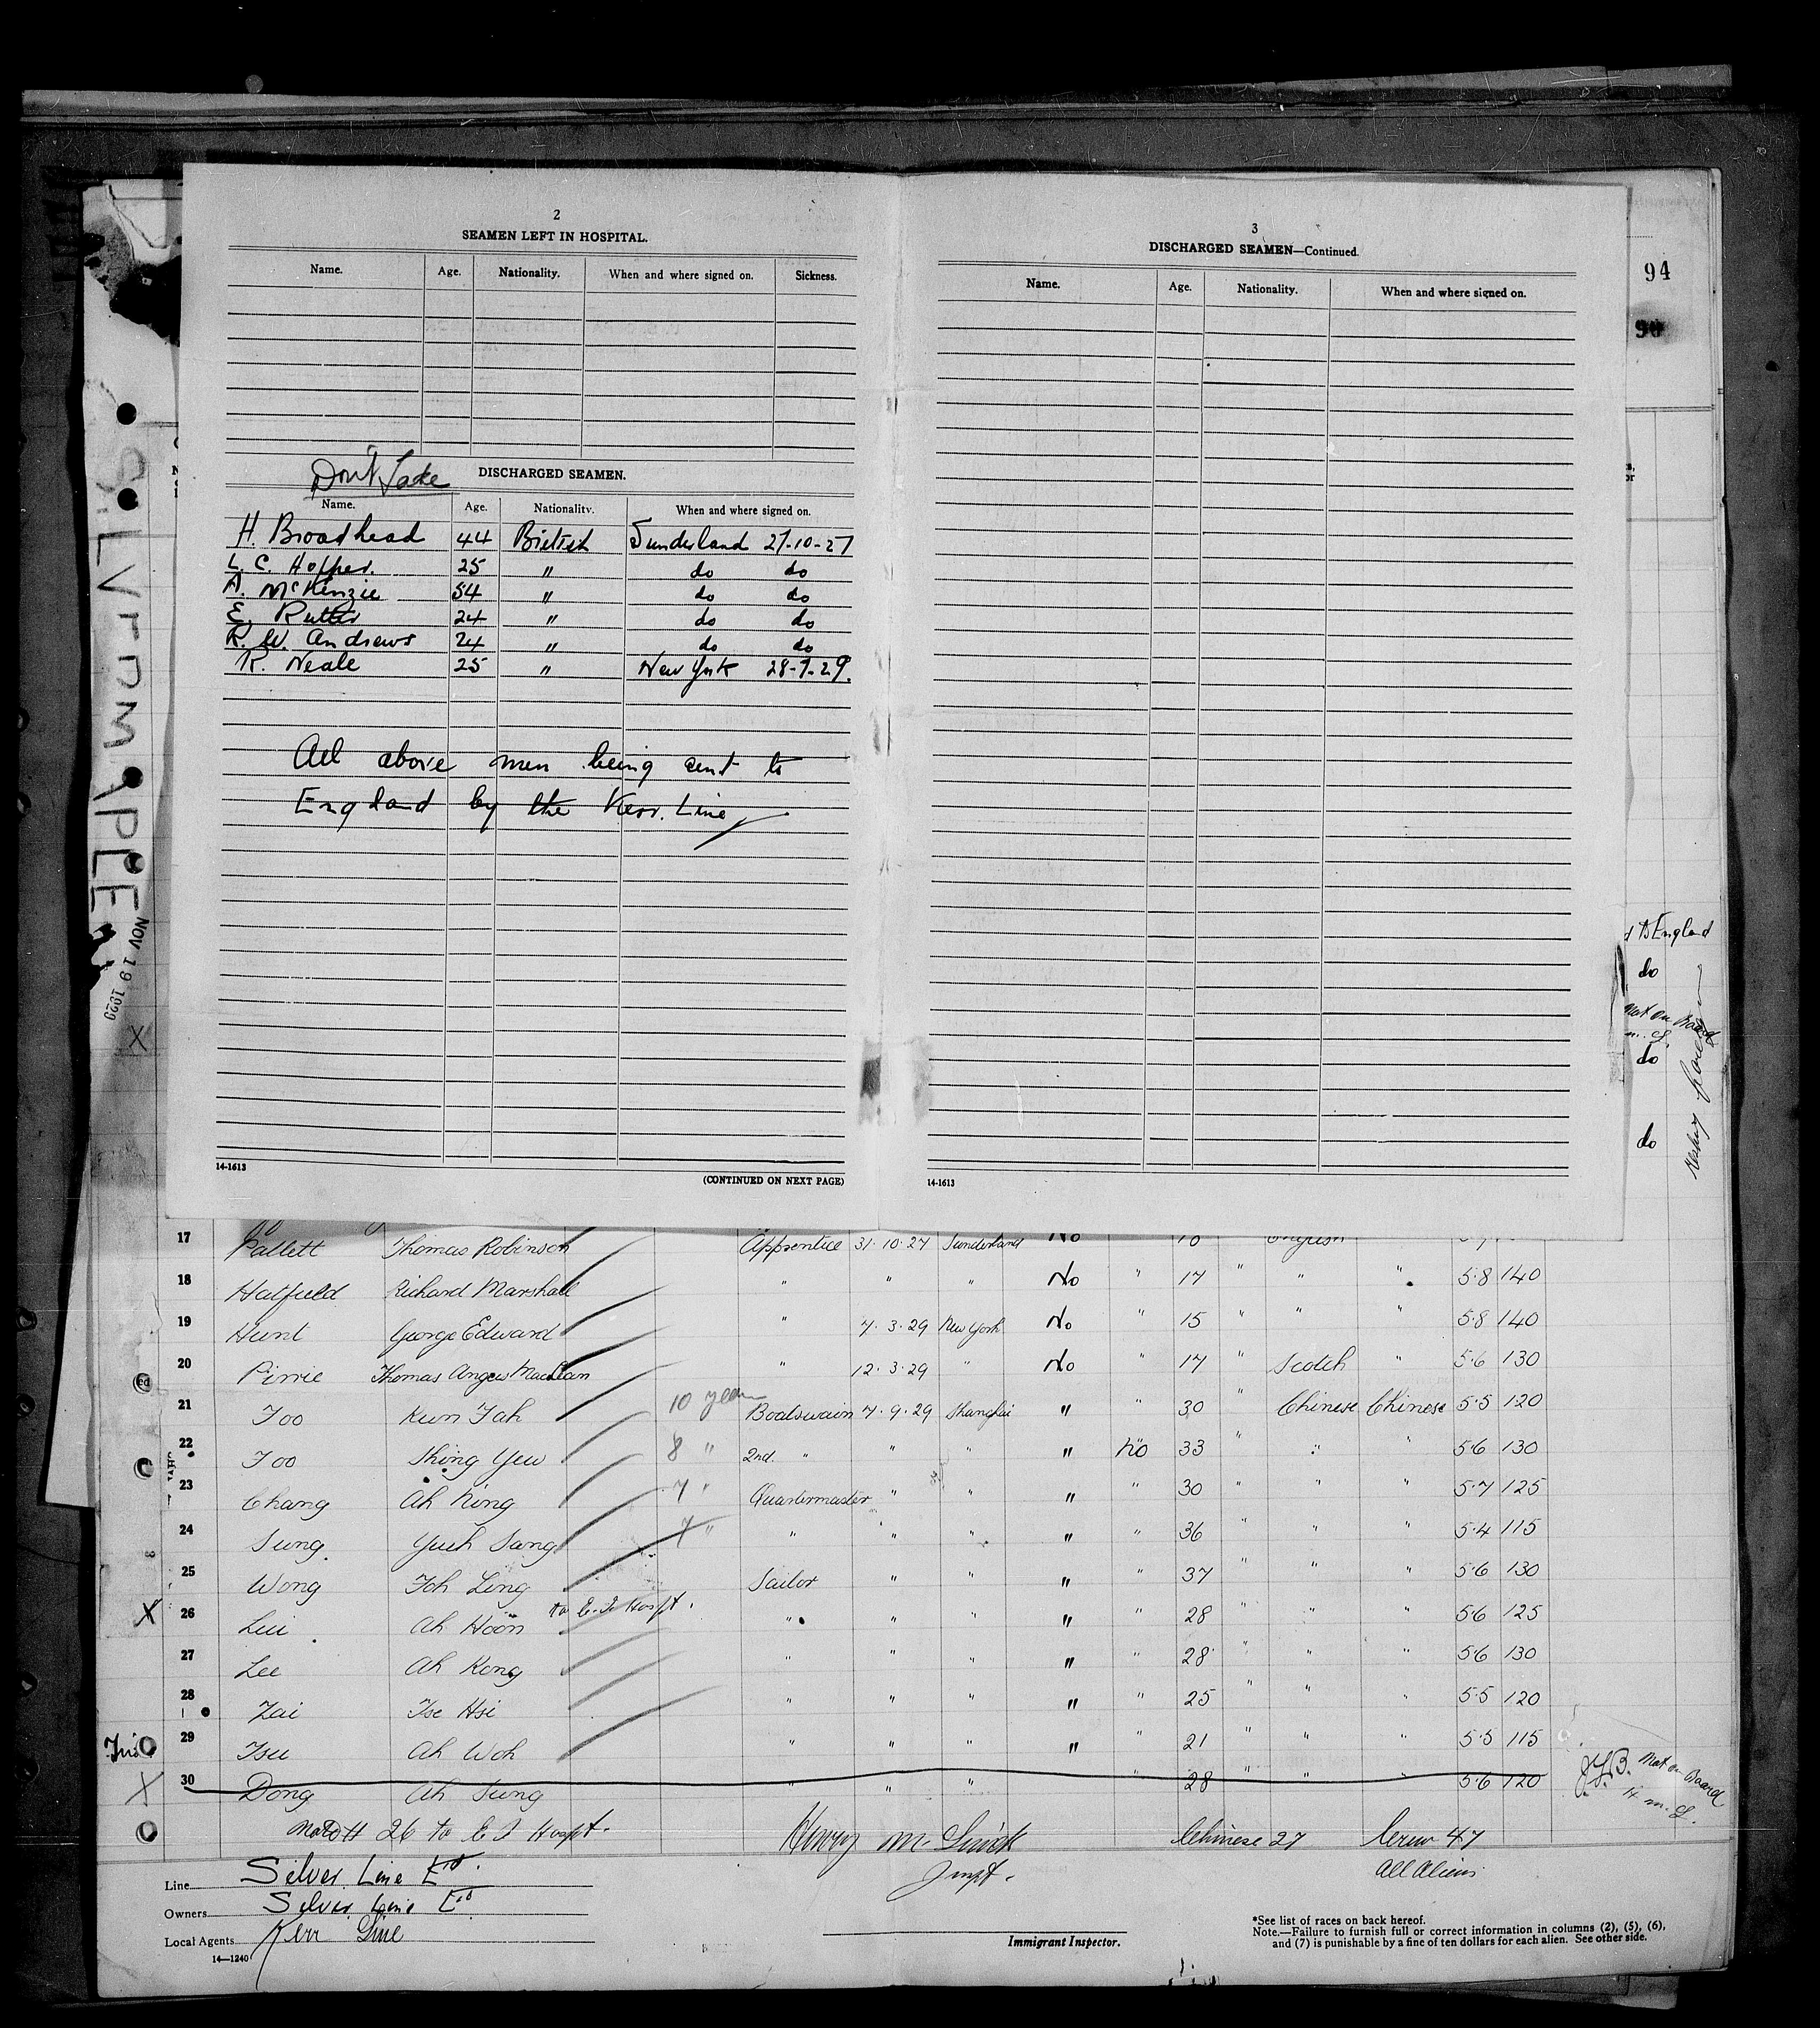 2
SEAMEN LEFT IN HOSPITAL.
Name. Age. Nationality. When and where signed on. Sickness.
Don't Take DISCHARGED SEAMEN.
Name. Age. Nationality. When and where signed on.
H. Broadhead 44 British Sunderland 27-10-27
L. C. Hopper. 25 " do do
A. McKenzie 54 " do do
E. Rutter 24 " do do
R. W. Andrews 24 " do do
R. Neale 25 " New York 28-9-29.
All above men being sent to
England by the Kerr. Line
14-1613
(CONTINUED ON NEXT PAGE)
3
DISCHARGED SEAMEN—Continued.
Name. Age. Nationality. When and where signed on.
14-1613
94
SILVERMAPLE
NOV 19 1929
to England
do
Not on Board
do
do
17 Pallett Thomas Robinson Apprentice 31·10·27 Sunderland No English
18 Hatfield Richard Marshall " " " No " 17 " " " 5·8 140
19 Hunt George Edward " 7·3·29 New York No " 15 " " " 5·8 140
20 Pirrie Thomas Angus MacLean " 12·3·29 " No " 17 " Scotch " 5·6 130
21 Foo Kun Fah 10 years Boatswain 7·9·29 Shanghai " " 30 " Chinese Chinese 5·5 120
22 Foo Shing Yew 8 " 2nd. " " " " no 33 " " " 5·6 130
23 Chang Ah King 7 " Quartermaster " " " " 30 " " " 5·7 125
24 Sung Yueh Sang 7 " " " " " " 36 " " " 5·4 115
25 Wong Foh Ling Sailor " " " " 37 " " " 5·6 130
X 26 Lui Ah Hoon to E. I. Hospt. " " " " " 28 " " " 5·6 125
27 Lee Ah Kong " " " " " 28 " " " 5·6 130
28 Zai Tse Hsi " " " " " 25 " " " 5·5 120
29 Tsu Ah Woh " " " " " 21 " " " 5·5 115
X 30 Dong Ah Sung " " " " 28 " " 5·6 120 Not on Board
26 to E I Hospt. Henry Chinese 27 Crew 47
Inspt. All Aliens
Line Silver Line Ltd.
Owners Silver Line Ltd
Local Agents Kerr Line
14—1240
Immigrant Inspector.
*See list of races on back hereof.
Note.—Failure to furnish full or correct information in columns (2), (5), (6),
and (7) is punishable by a fine of ten dollars for each alien. See other side.